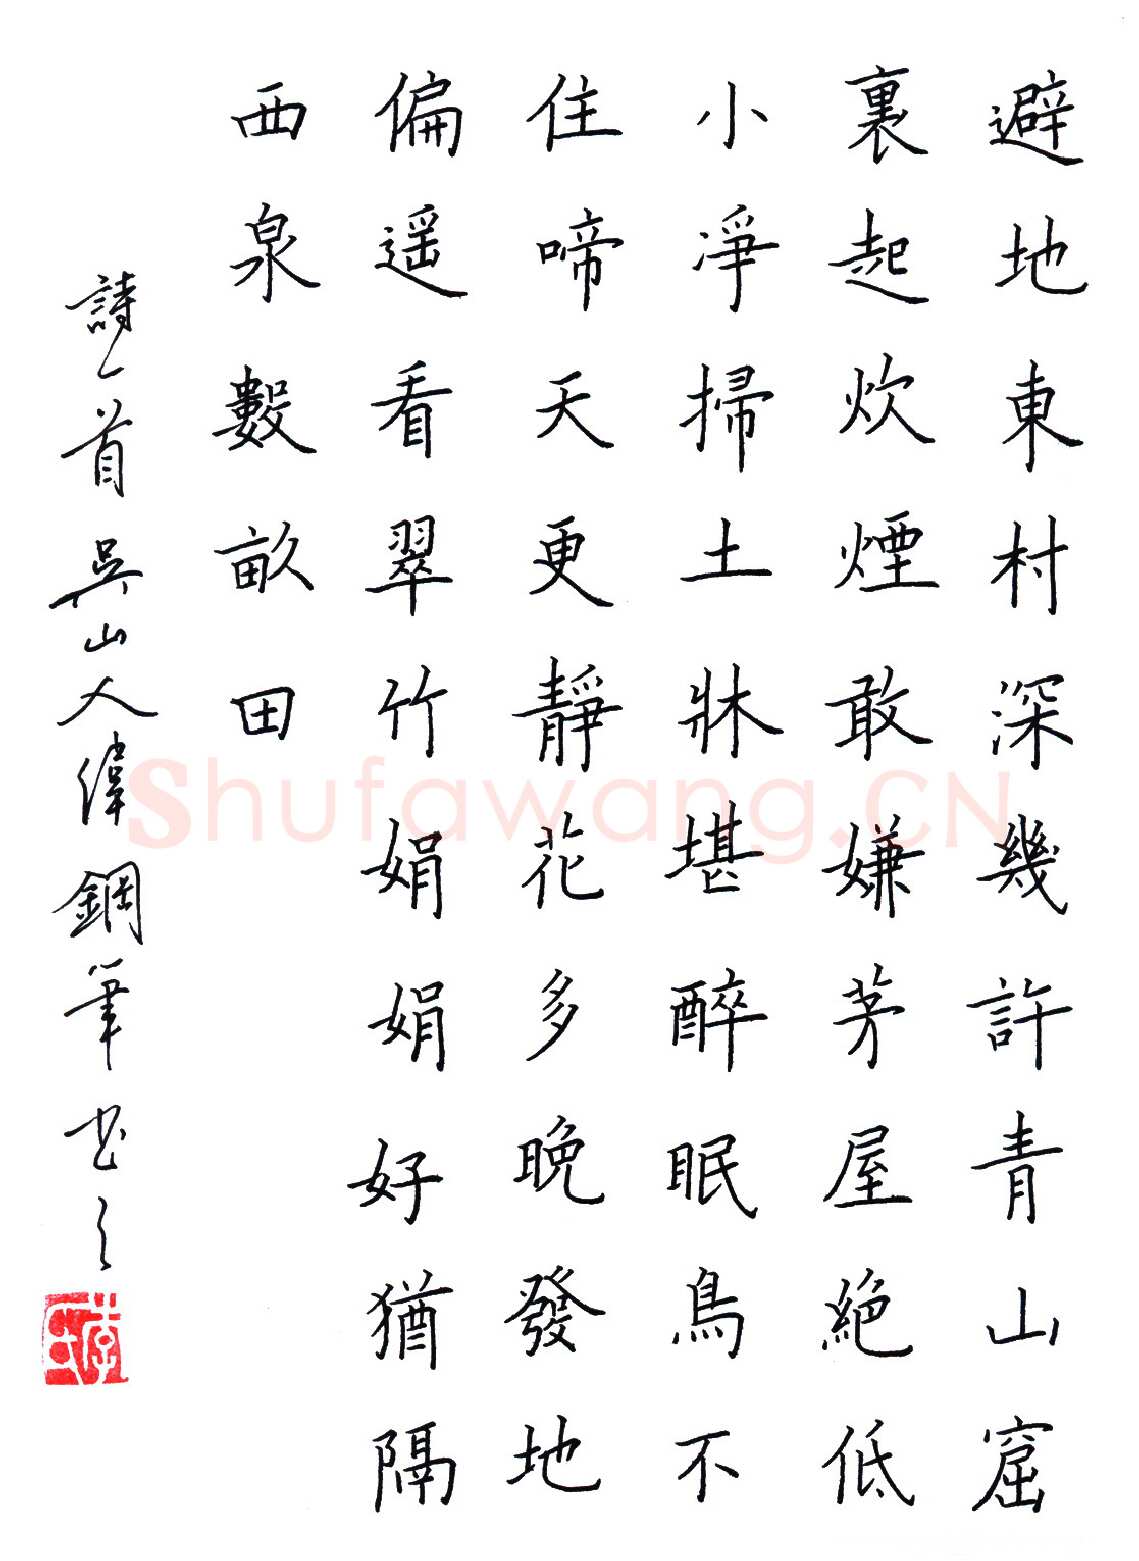 避地東村深幾許青山窟
裏起炊煙敢嫌茅屋絶低
小淨掃土牀堪醉眠鳥不
住啼天更靜花多晚發地
偏遥看翠竹娟娟好猶隔
西泉數畝田
詩一首吳山人偉鋼筆书之
李氏
Shufawang.CN